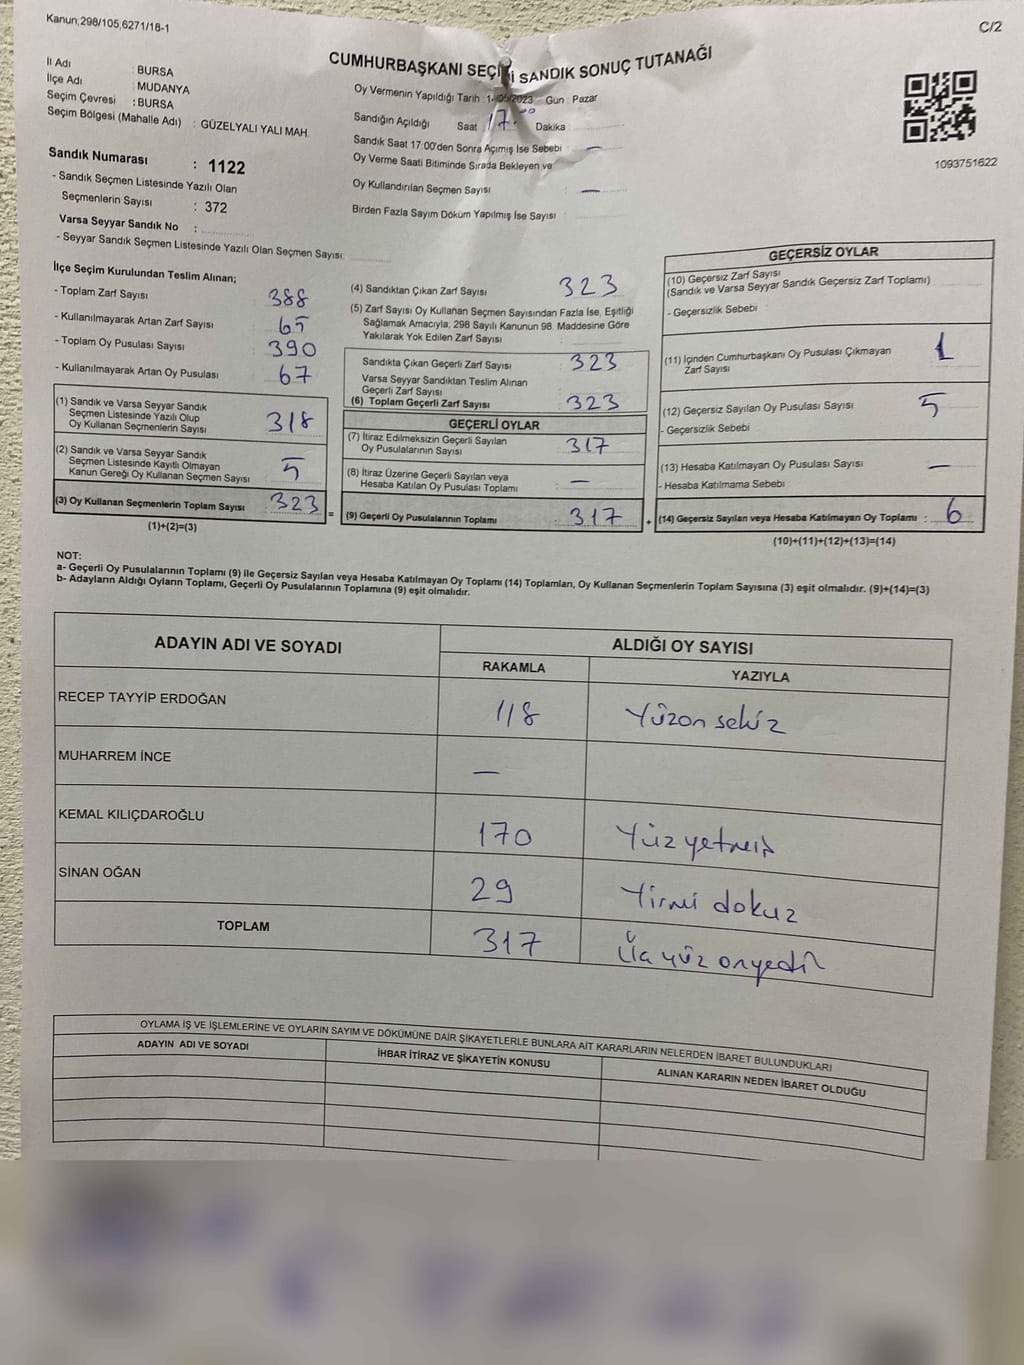 Kanun,298/105,6271/18-1
C/2
CUMHURBAŞKANI SEÇİ İ SANDIK SONUÇ TUTANAĞI
İl Adı : BURSA
İlçe Adı : MUDANYA
Seçim Çevresi : BURSA
Seçim Bölgesi (Mahalle Adı) : GÜZELYALI YALI MAH.
Sandık Numarası : 1122
- Sandık Seçmen Listesinde Yazılı Olan
Seçmenlerin Sayısı : 372
Varsa Seyyar Sandık No :
- Seyyar Sandık Seçmen Listesinde Yazılı Olan Seçmen Sayısı:
Oy Vermenin Yapıldığı Tarih : /2023 Gün : Pazar
Sandığın Açıldığı Saat 17.00 Dakika
Sandık Saat 17:00'den Sonra Açımış İse Sebebi : —
Oy Verme Saati Bitiminde Sırada Bekleyen ve
Oy Kullandırılan Seçmen Sayısı : —
Birden Fazla Sayım Döküm Yapılmış İse Sayısı :
1093751622
İlçe Seçim Kurulundan Teslim Alınan;
- Toplam Zarf Sayısı : 388
- Kullanılmayarak Artan Zarf Sayısı : 65
- Toplam Oy Pusulası Sayısı : 390
- Kullanılmayarak Artan Oy Pusulası : 67
(1) Sandık ve Varsa Seyyar Sandık
Seçmen Listesinde Yazılı Olup
Oy Kullanan Seçmenlerin Sayısı : 318
(2) Sandık ve Varsa Seyyar Sandık
Seçmen Listesinde Kayıtlı Olmayan
Kanun Gereği Oy Kullanan Seçmen Sayısı : 5
(3) Oy Kullanan Seçmenlerin Toplam Sayısı : 323
(1)+(2)=(3)
=
(4) Sandıktan Çıkan Zarf Sayısı : 323
(5) Zarf Sayısı Oy Kullanan Seçmen Sayısından Fazla İse, Eşitliği
Sağlamak Amacıyla, 298 Sayılı Kanunun 98. Maddesine Göre
Yakılarak Yok Edilen Zarf Sayısı :
Sandıkta Çıkan Geçerli Zarf Sayısı : 323
Varsa Seyyar Sandıktan Teslim Alınan
Geçerli Zarf Sayısı :
(6) Toplam Geçerli Zarf Sayısı : 323
GEÇERLİ OYLAR
(7) İtiraz Edilmeksizin Geçerli Sayılan
Oy Pusulalarının Sayısı : 317
(8) İtiraz Üzerine Geçerli Sayılan veya
Hesaba Katılan Oy Pusulası Toplamı : —
(9) Geçerli Oy Pusulalarının Toplamı : 317
+
GEÇERSİZ OYLAR
(10) Geçersiz Zarf Sayısı
(Sandık ve Varsa Seyyar Sandık Geçersiz Zarf Toplamı) :
- Geçersizlik Sebebi :
(11) İçinden Cumhurbaşkanı Oy Pusulası Çıkmayan
Zarf Sayısı : 1
(12) Geçersiz Sayılan Oy Pusulası Sayısı : 5
- Geçersizlik Sebebi
(13) Hesaba Katılmayan Oy Pusulası Sayısı : —
- Hesaba Katılmama Sebebi
(14) Geçersiz Sayılan veya Hesaba Katılmayan Oy Toplamı : 6
(10)+(11)+(12)+(13)=(14)
NOT:
a- Geçerli Oy Pusulalarının Toplamı (9) ile Geçersiz Sayılan veya Hesaba Katılmayan Oy Toplamı (14) Toplamları, Oy Kullanan Seçmenlerin Toplam Sayısına (3) eşit olmalıdır. (9)+(14)=(3)
b- Adayların Aldığı Oyların Toplamı, Geçerli Oy Pusulalarının Toplamına (9) eşit olmalıdır.
ADAYIN ADI VE SOYADI
ALDIĞI OY SAYISI
RAKAMLA
YAZIYLA
RECEP TAYYİP ERDOĞAN 118 Yüzon sekiz
MUHARREM İNCE —
KEMAL KILIÇDAROĞLU 170 Yüz yetmiş
SİNAN OĞAN 29 Yirmi dokuz
TOPLAM 317 Üç yüz onyedi
OYLAMA İŞ VE İŞLEMLERİNE VE OYLARIN SAYIM VE DÖKÜMÜNE DAİR ŞİKAYETLERLE BUNLARA AİT KARARLARIN NELERDEN İBARET BULUNDUKLARI
ADAYIN ADI VE SOYADI
İHBAR İTİRAZ VE ŞİKAYETİN KONUSU
ALINAN KARARIN NEDEN İBARET OLDUĞU